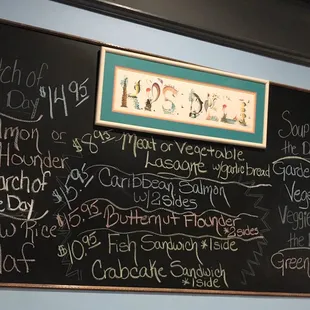 Kip's DELI
arch of
Day $14.95
lmon or
Flounder
arch of
e Day
w Rice
af
$8.95 Meat or Vegetable
Lasagne w/garlic bread
$15.95 Caribbean Salmon
w/2 sides
$15.95 Butternut Flounder
*2 sides
$10.95 Fish Sandwich *1 side
Crabcake Sandwich
*1 side
Soup
the
Garde
Vege
Veggie
the
Green